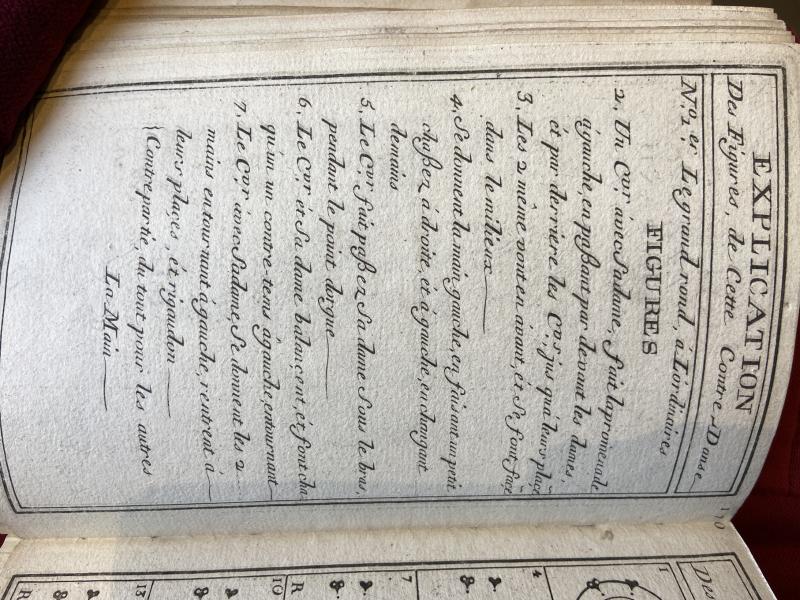 EXPLICATION
Des Figures, de Cette Contre-Danse
N.º 1.er Le grand rond, à L'ordinaires
FIGURES
2, Un Cvr avec Sa dame, fait le promenade
à gauche, en paßant par devant les dames,
ét par derriere les Cvrs, jus qu'a leurs place
3, Les 2 même vont en avant, ét Se font face
dans le milieux
4, Se donnent la main gauche, en faisant un petit
chaßez à droite, et à gauche, en changant
demains
5, Le Cvr fait paßez Sa dame Sous le bras,
pendant le point dorgue
6, Le Cvr et Sa dame balancent, ét font cha
qu'un un contre-tems à gauche, en tournant
7, Le Cvr avec Sa dame Se donnent les 2
mains en tournant à gauche, rentrent à
leurs places, ét rigaudon
{Contre partie, du tout pour les autres
La Main
110
Des
1
4
7
R
10
13
R